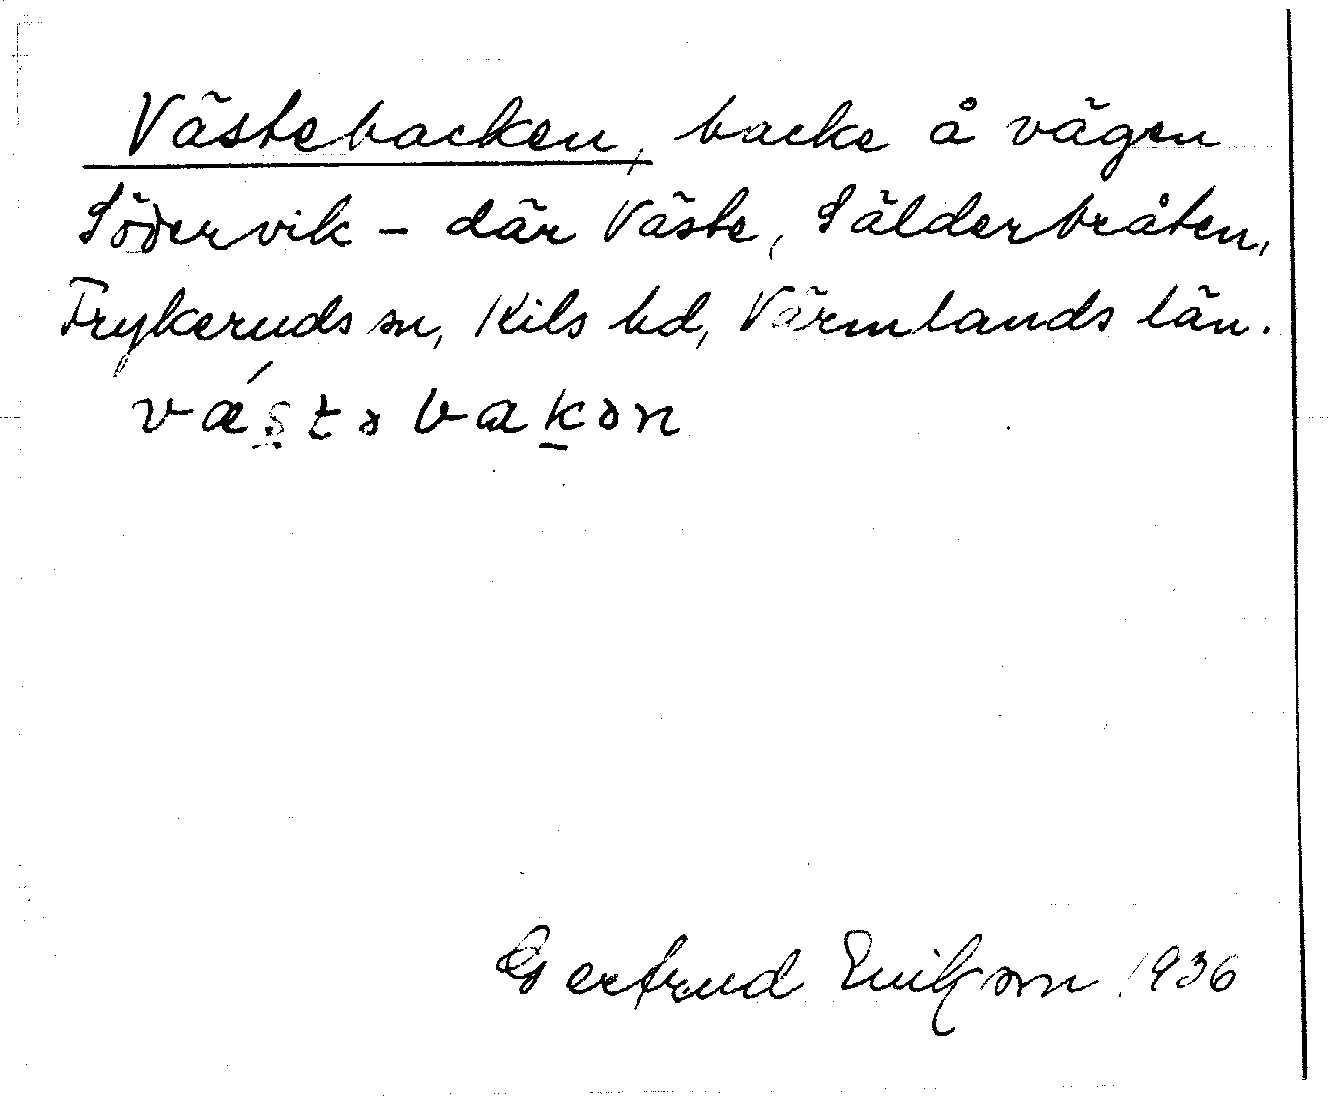 Västebacken, backe å vägen
Södervik – där Väste, Sälderbråten,
Frykeruds sn, Kils hd, Värmlands län.
vǽstəbakən
Gertrud Erikson 1936